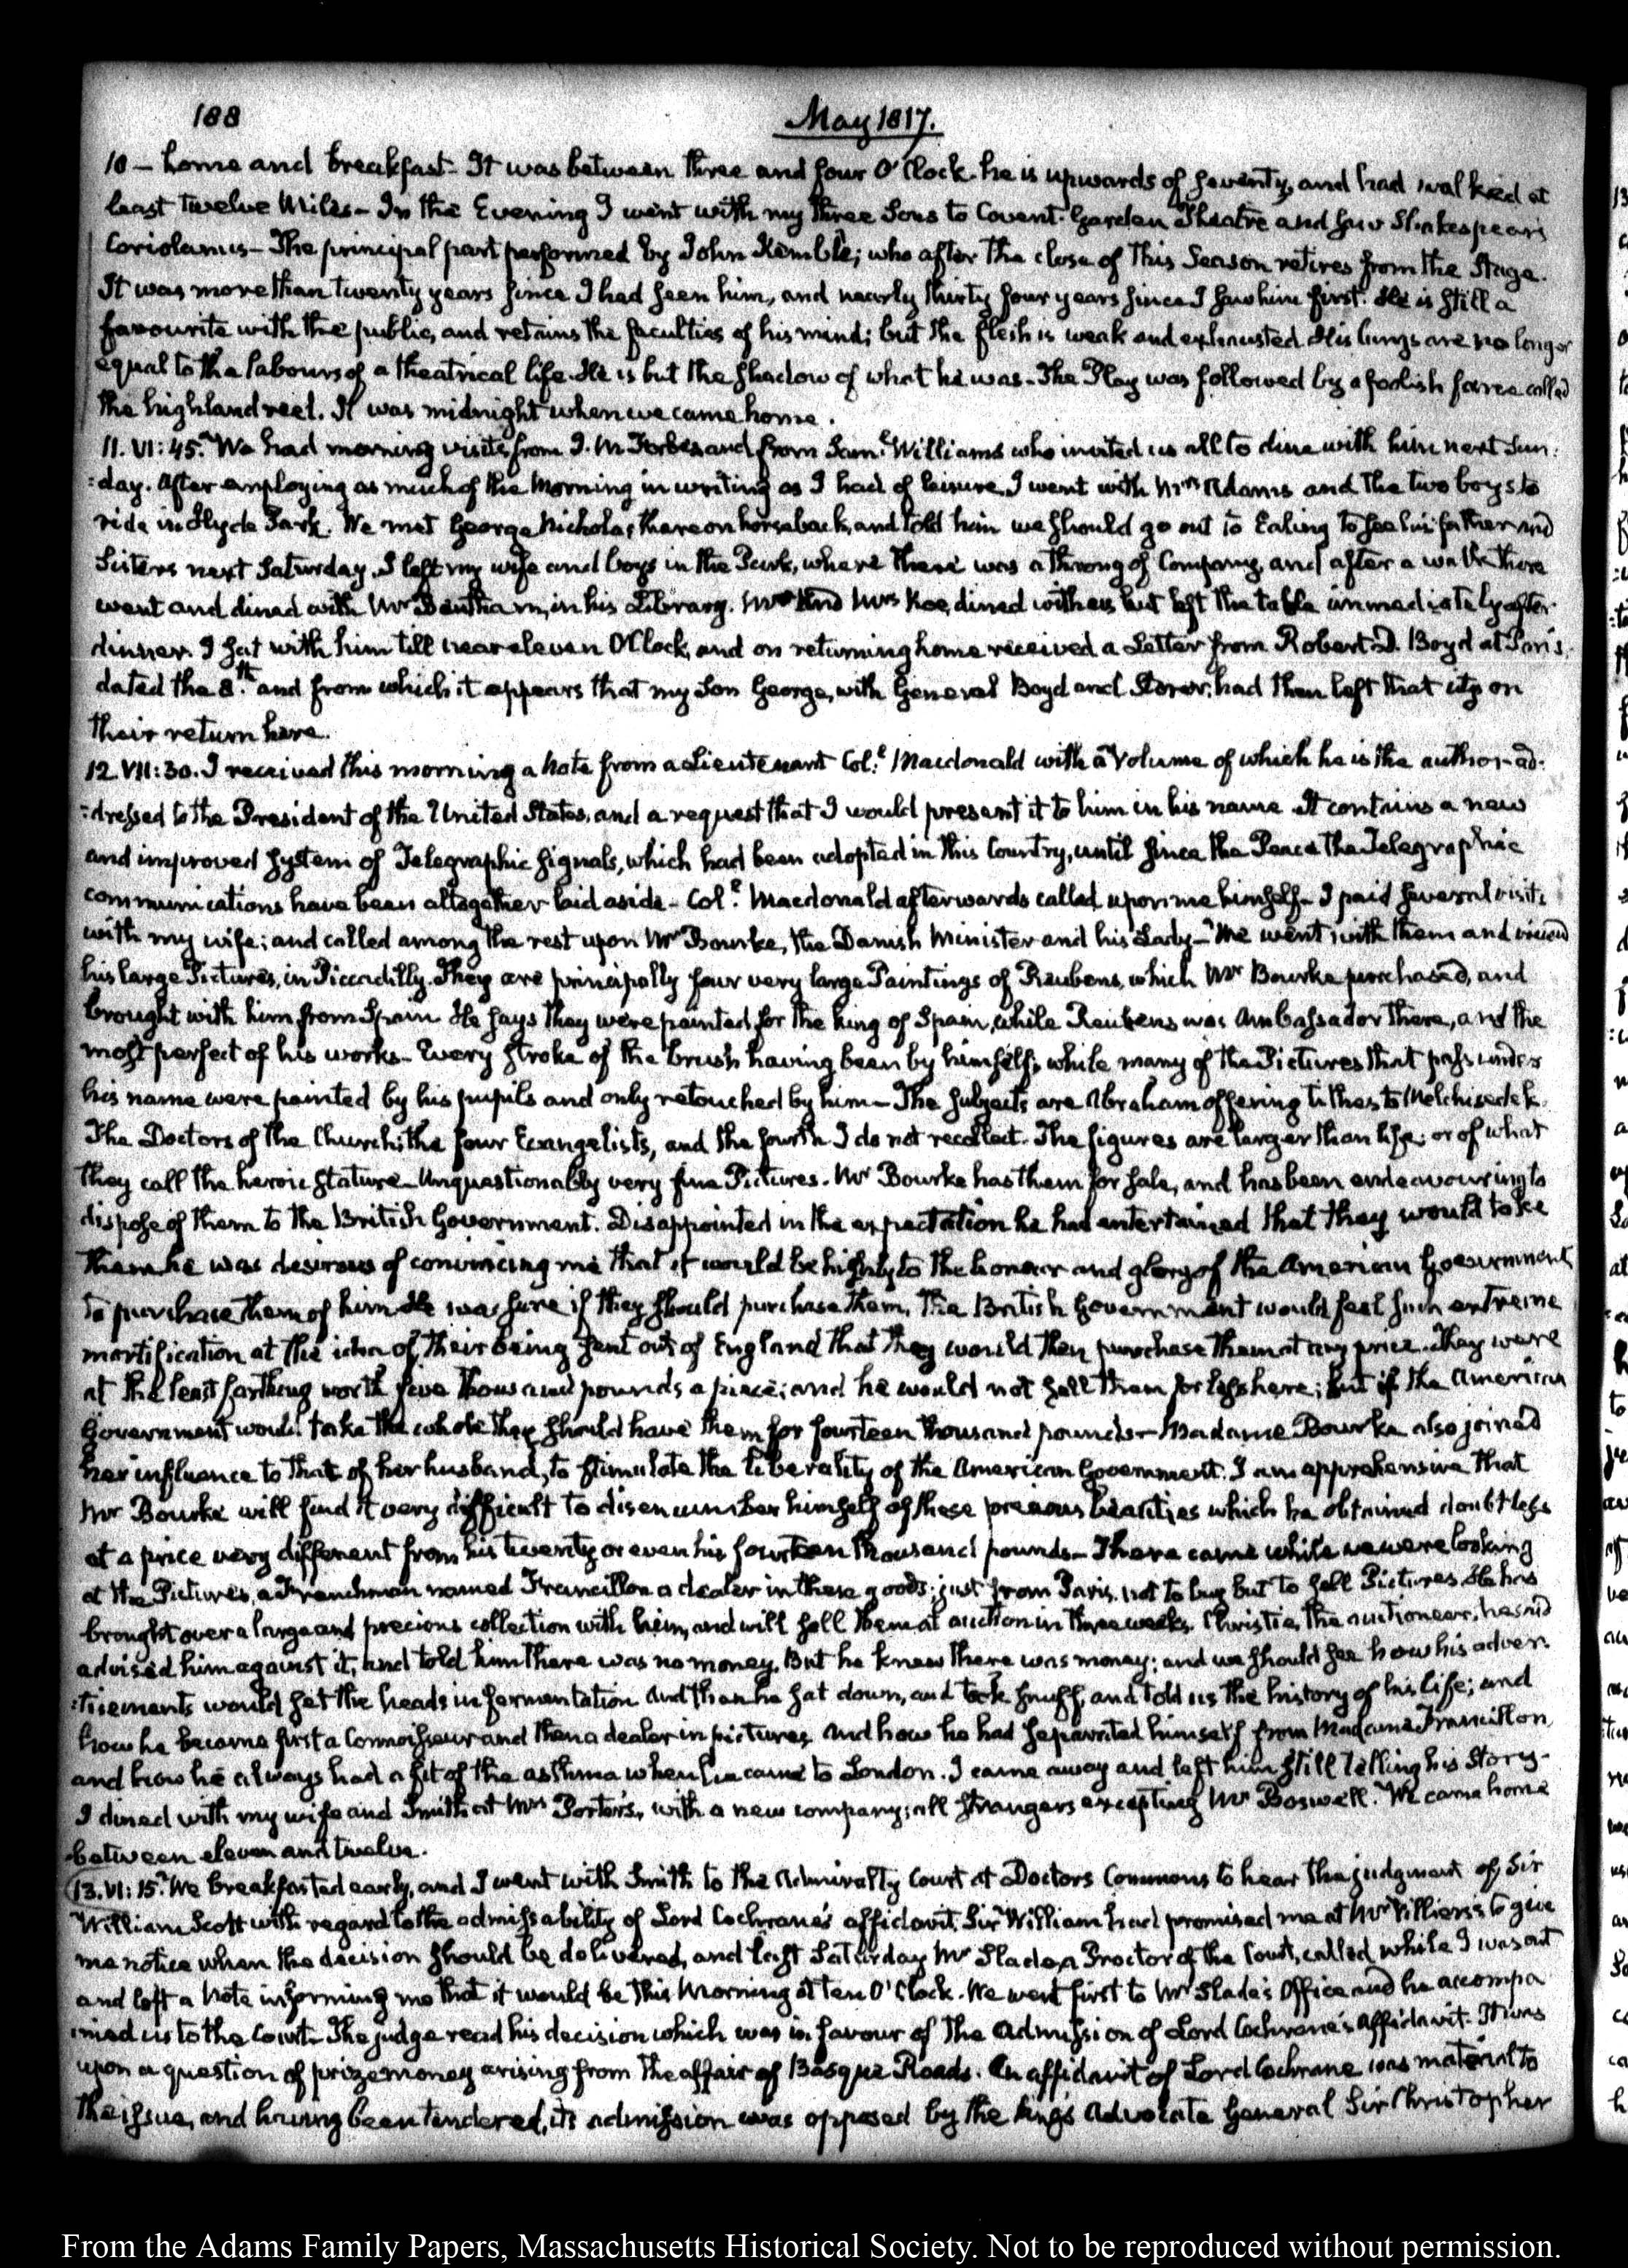 188
May 1817.
10 — home and breakfast. It was between three and four O'Clock. he is upwards of seventy, and had walked at
least twelve Miles — In the Evening I went with my three Sons to Covent-Garden Theatre and saw Shakespear's
Coriolanus — The principal part performed by John Kemble; who after the close of this Season retires from the Stage.
It was more than twenty years since I had seen him, and nearly thirty four years since I saw him first. He is still a
favourite with the public, and retains the faculties of his mind; but the flesh is weak and exhausted. His lungs are no longer
equal to the labours of a theatrical life. He is but the shadow of what he was. The Play was followed by a foolish farce called
the highland reel. It was midnight when we came home.
11. VI: 45. We had morning visits from J. M. Forbes and from Saml. Williams who invited us all to dine with him next Sun:
:day. After employing as much of the Morning in writing as I had of leisure, I went with Mrs Adams and the two boys to
ride in Hyde Park. We met George Nicholas there on horseback, and told him we should go out to Ealing to see his father and
Sisters next Saturday. I left my wife and boys in the Park, where there was a throng of Company, and after a walk there
went and dined with Mr Bentham, in his Library. Mr and Mrs Koe, dined with us but left the table immediately after
dinner. I sat with him till near eleven O'Clock, and on returning home received a Letter from Robert D. Boyd at Paris,
dated the 8th and from which it appears that my Son George, with General Boyd and Storer, had then left that city on
their return here.
12. VII: 30. I received this morning a Note from a Lieutenant Coll. Macdonald with a Volume of which he is the author — ad:
:dressed to the President of the United States, and a request that I would present it to him in his name. It contains a new
and improved System of Telegraphic Signals, which had been adopted in this Country, until since the Peace the Telegraphic
communications have been altogether laid aside — Coll. Macdonald afterwards called upon me himself — I paid several visits
with my wife; and called among the rest upon Mr Bourke, the Danish Minister and his Lady — We went with them and viewed
his large Pictures, in Piccadilly. They are principally four very large Paintings of Reubens, which Mr Bourke purchased, and
brought with him from Spain. He says they were painted for the king of Spain, while Reubens was Ambassador there, and the
most perfect of his works — Every stroke of the brush having been by himself; while many of the Pictures that pass under
his name were painted by his pupils and only retouched by him — The subjects are Abraham offering tithes to Melchisedek.
The Doctors of the Church; the four Evangelists, and the fourth I do not recollect. The figures are larger than life; or of what
they call the heroic stature — Unquestionably very fine Pictures. Mr Bourke has them for sale, and has been endeavouring to
dispose of them to the British Government. Disappointed in the expectation he had entertained that they would take
them he was desirous of convincing me that it would be highly to the honour and glory of the American Government
to purchase them of him. He was sure if they should purchase them, the British Government would feel such extreme
mortification at the idea of their being sent out of England that they would then purchase them at any price. They were
at the least farthing worth five thousand pounds a piece; and he would not sell them for less here; but if the American
Government would take the whole they should have them for fourteen thousand pounds — Madame Bourke also joined
her influence to that of her husband, to stimulate the liberality of the American Government. I am apprehensive that
Mr Bourke will find it very difficult to disencumber himself of these precious beauties which he obtained doubtless
at a price very different from his twenty or even his fourteen thousand pounds — There came while we were looking
at the Pictures, a Frenchman named Francillon a dealer in these goods; just from Paris, not to buy but to sell Pictures. He has
brought over a large and precious collection with him, and will sell them at auction in three weeks. Christie, the auctioneer, he said
advised him against it, and told him there was no money. But he knew there was money; and we should see how his adver:
:tisements would set the heads in fermentation. And then he sat down, and took snuff, and told us the history of his life; and
how he became first a Connoisseur and then a dealer in pictures, and how he had separated himself from Madame Francillon,
and how he always had a fit of the asthma when he came to London. I came away and left him still telling his story —
I dined with my wife and Smith at Mrs Porter's, with a new company; all strangers excepting Mr Boswell. We came home
between eleven and twelve.
13. VI: 15. We breakfasted early, and I went with Smith to the Admiralty Court at Doctors Commons to hear the judgment of Sir
William Scott with regard to the admissability of Lord Cochrane's affidavit. Sir William had promised me at Mr Villiers's to give
me notice when the decision should be delivered, and last Saturday Mr Slade, a Proctor of the Court, called while I was out
and left a Note informing me that it would be this Morning at ten O'Clock. We went first to Mr Slade's Office and he accompa
:nied us to the Court. The judge read his decision which was in favour of the Admission of Lord Cochrane's affidavit. It was
upon a question of prize money arising from the affair of Basque Roads. An affidavit of Lord Cochrane was material to
the issue, and having been tendered, its admission was opposed by the King's Advocate General Sir Christopher
From the Adams Family Papers, Massachusetts Historical Society. Not to be reproduced without permission.